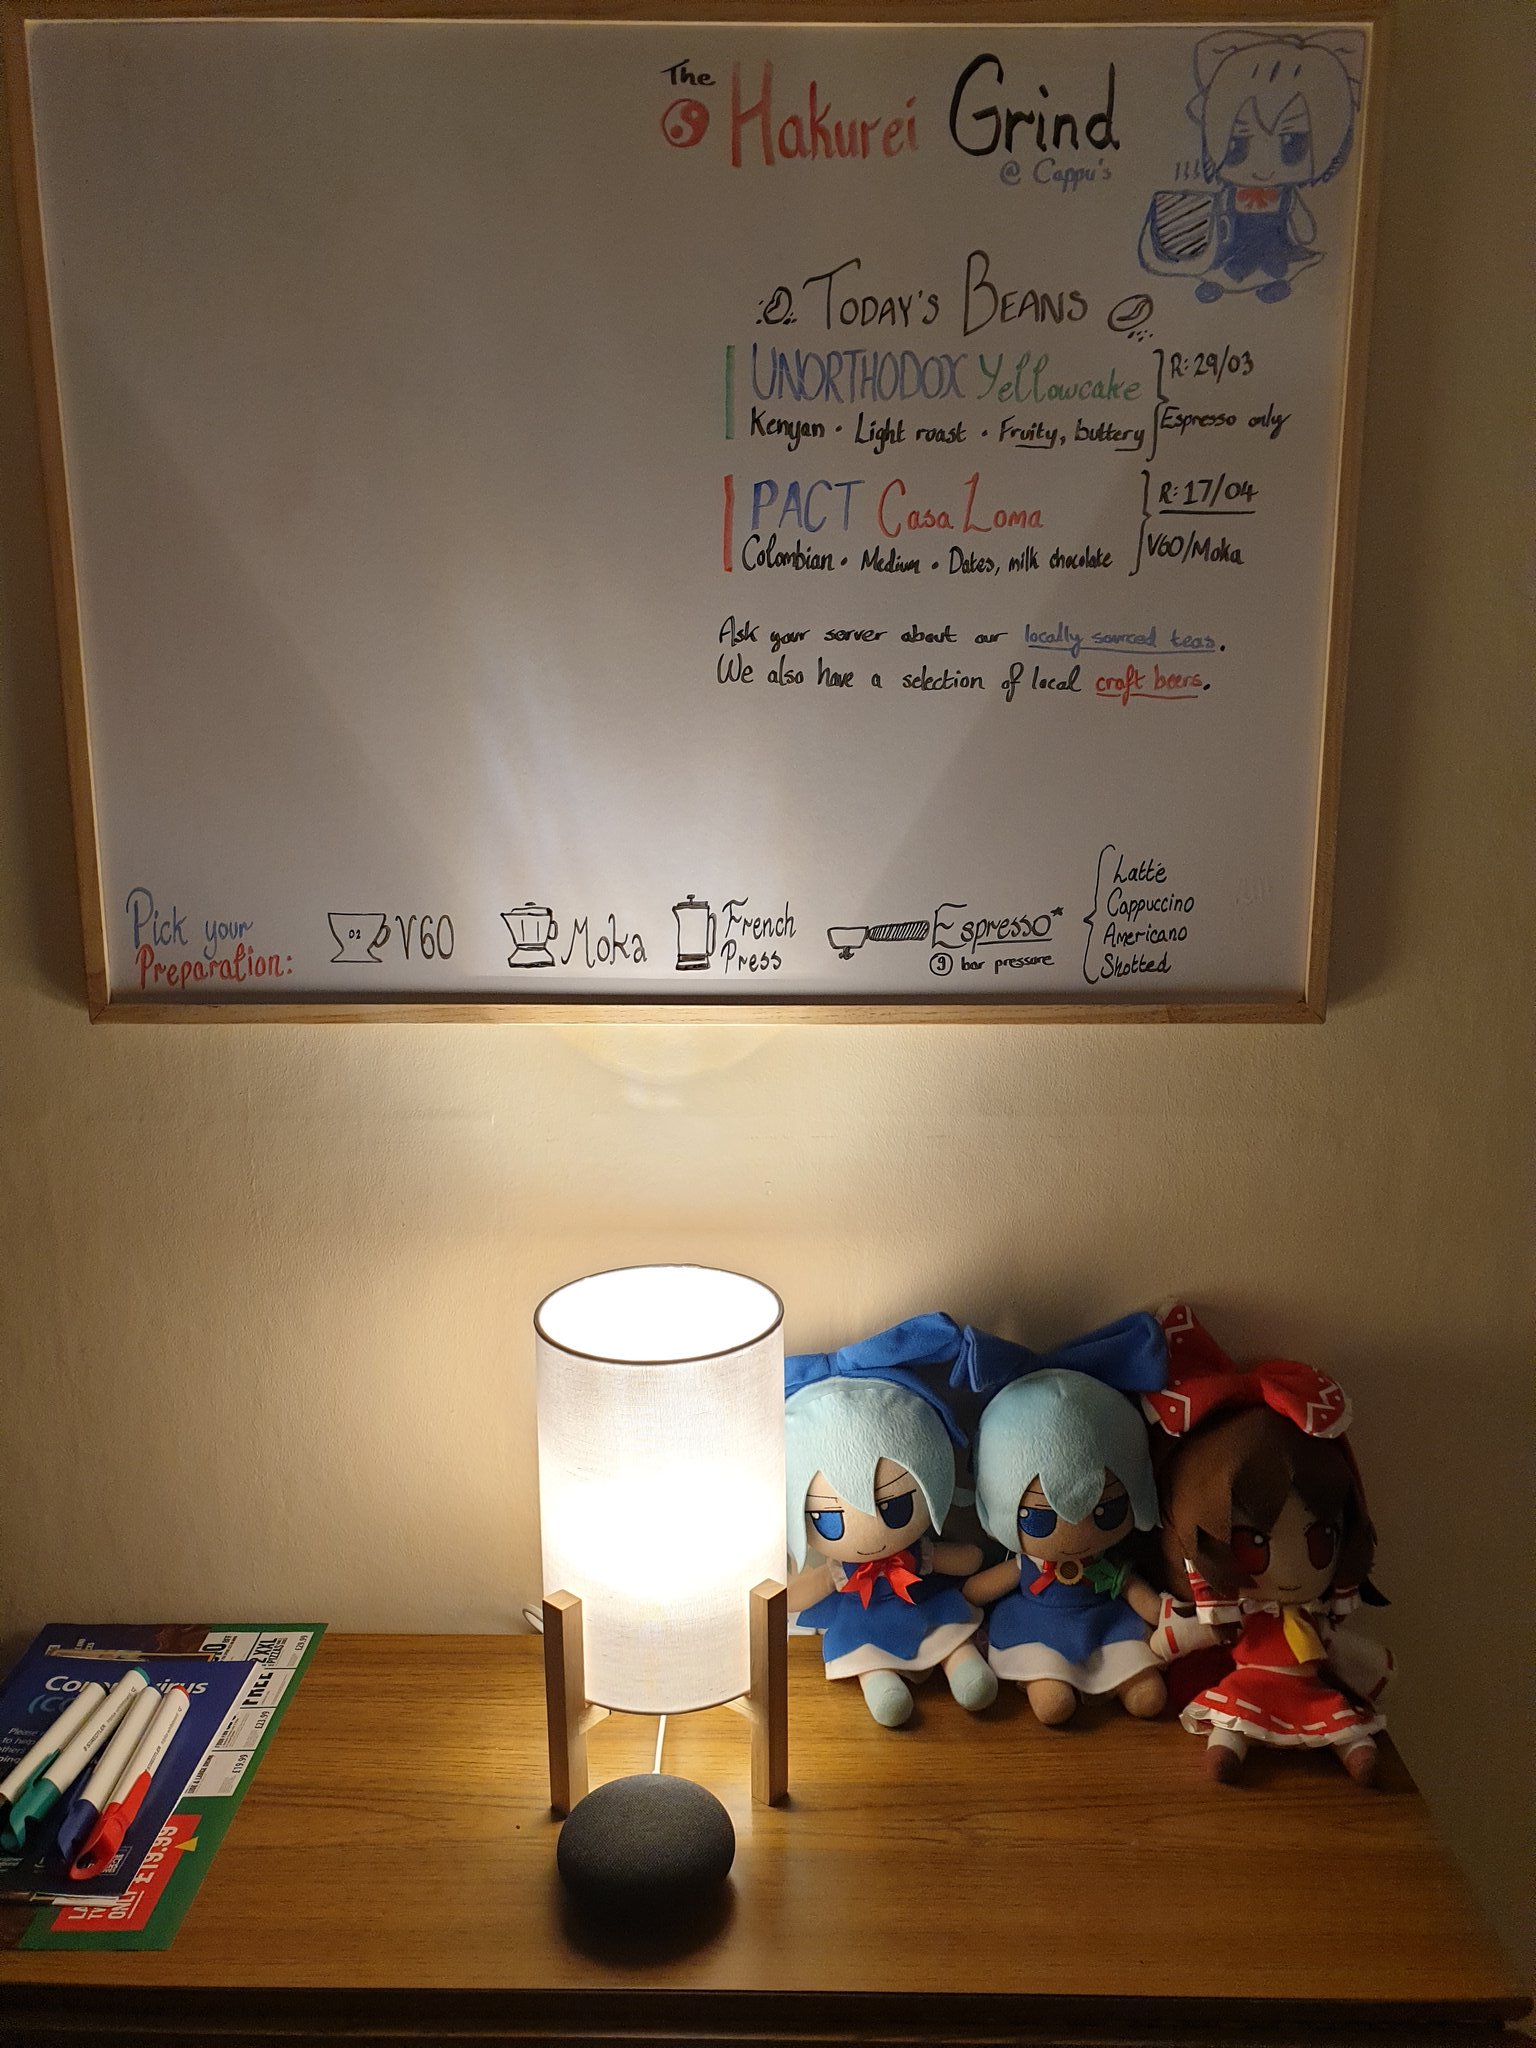 The
Hakurei Grind
@ Cappu's
TODAY'S BEANS
UNORTHODOX Yellowcake
R: 29/03
Kenyan • Light roast • Fruity, buttery
Espresso only
PACT Casa Loma
R: 17/04
Colombian • Medium • Dates, milk chocolate
V60/Moka
Ask your server about our locally sourced teas.
We also have a selection of local craft beers.
Pick your
Preparation:
02
V60
Moka
French
Press
Espresso*
9 bar pressure
Latté
Cappuccino
Americano
Shotted
2 XXL
PIZZAS
£29.99
FREE
£23.99
£19.99
ONLY £19.99